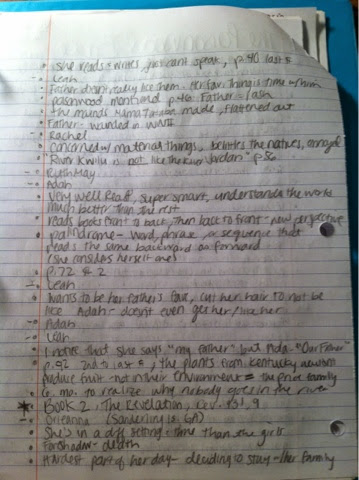 • she reads & writes, just can't speak, p.40 last ¶
-○ Leah
• Father doesn't really like them. Her fav. thing is time w/ him
• poisonwood p.40. Father - rash
• the mounds Mama Tataba made, flattened out
• Father - wounded in WWII
-○ Rachel
• concerned w/ material things, belittles the natives,
• "River Kwilu is not like the River Jordan" p56
-○ Ruth May
-○ Adah
• very well read, super smart, understands the works
much better than the rest
• reads books front to back, then back to front - new perspective
• palindrome - word, phrase, or sequence that
reads the same backward as forward
(she considers herself one)
• p.72 ¶ 2
-○ Leah
• wants to be her father's fav, cut her hair to not be
like Adah - doesn't even get her/like her
-○ Adah
-○ Leah
• I notice that she says "my Father" but Ada - "Our Father"
• p.92 2nd to last ¶, the plants from Kentucky
produce fruit - not in their environment = the Price family
• 6. mo. to realize why nobody goes in the river
* Book 2, The Revelation, Rev. 13:1, 9
-○ Orleanna (Sanderling Is. GA)
• She's in a diff setting & time than the girls
• Foreshadow - death
• Hardest part of her day - deciding to stay - her family